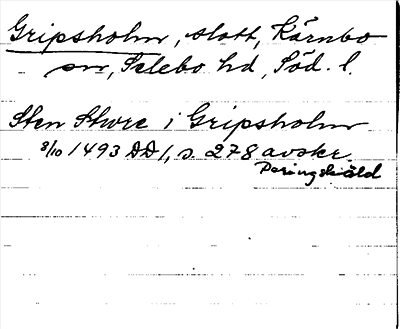 Gripsholm, slott, Kärnbo
sn, Selebo hd, Söd. l.
Sten Sture i Gripsholm
8/10 1493 DD 1, s. 278 avskr.
Peringskiöld